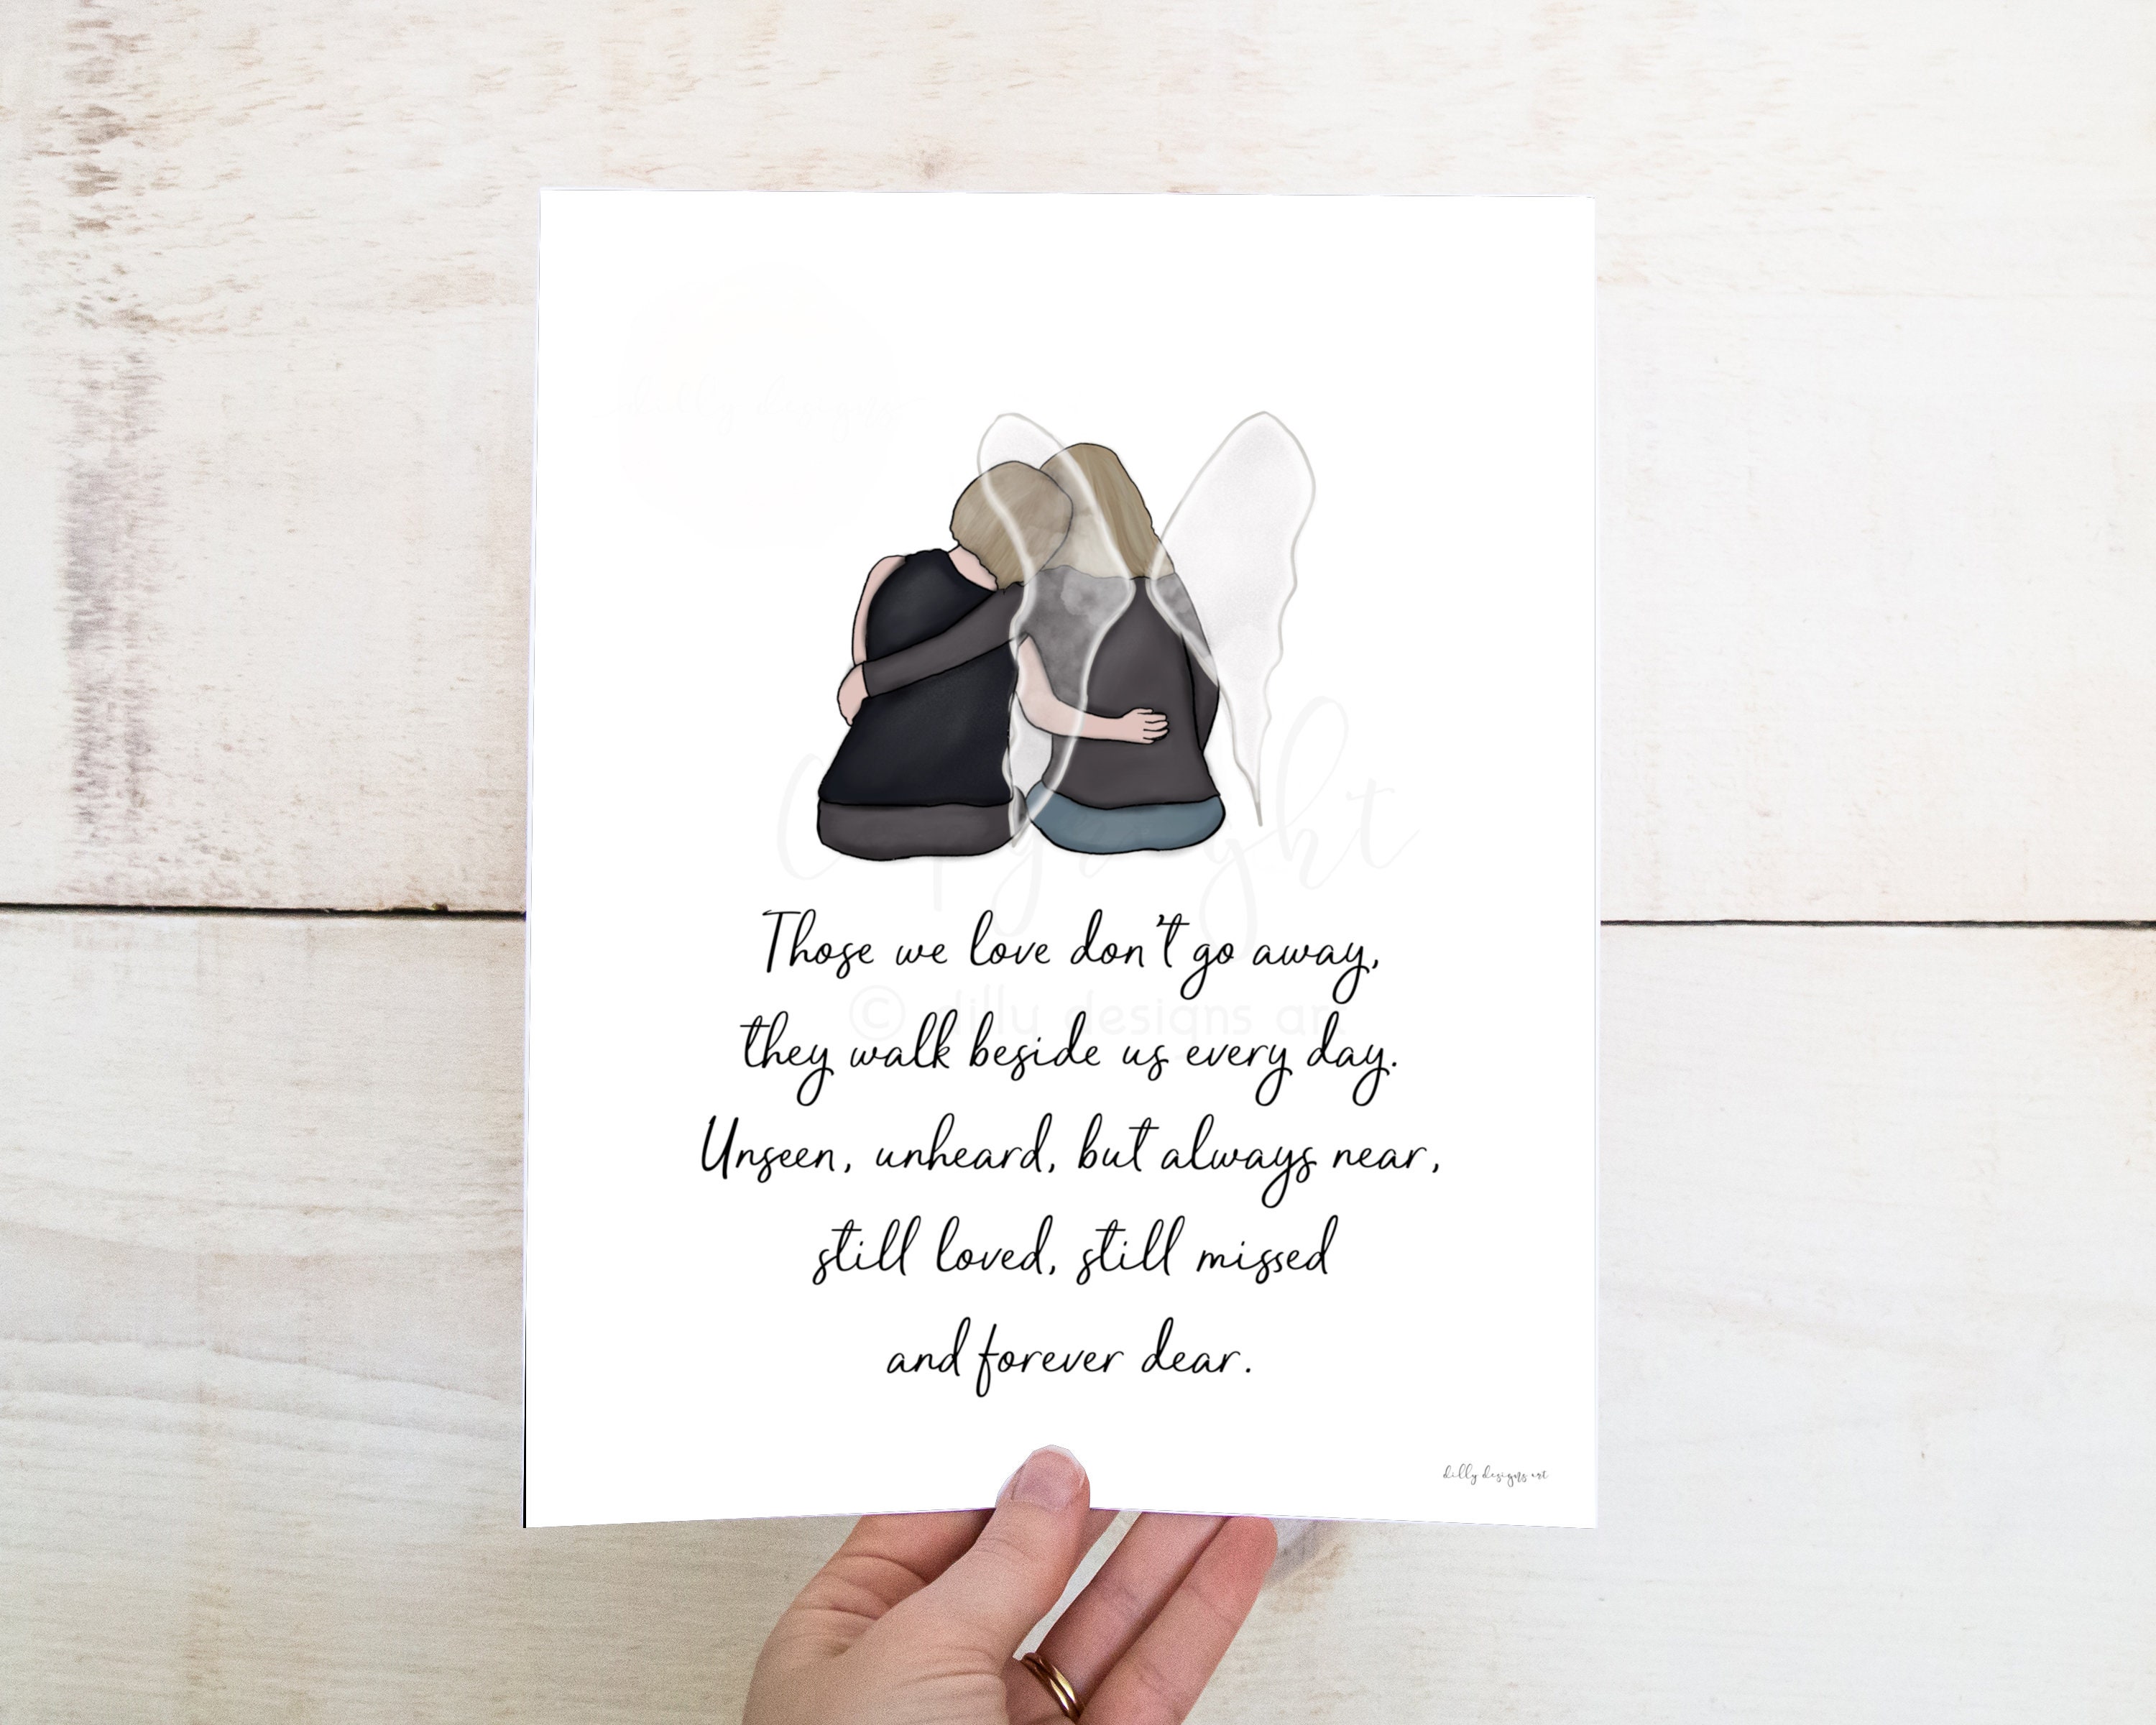 dilly designs
Copyright
Those we love don't go away,
© dilly designs art
they walk beside us every day.
Unseen, unheard, but always near,
still loved, still missed
and forever dear.
dilly designs art